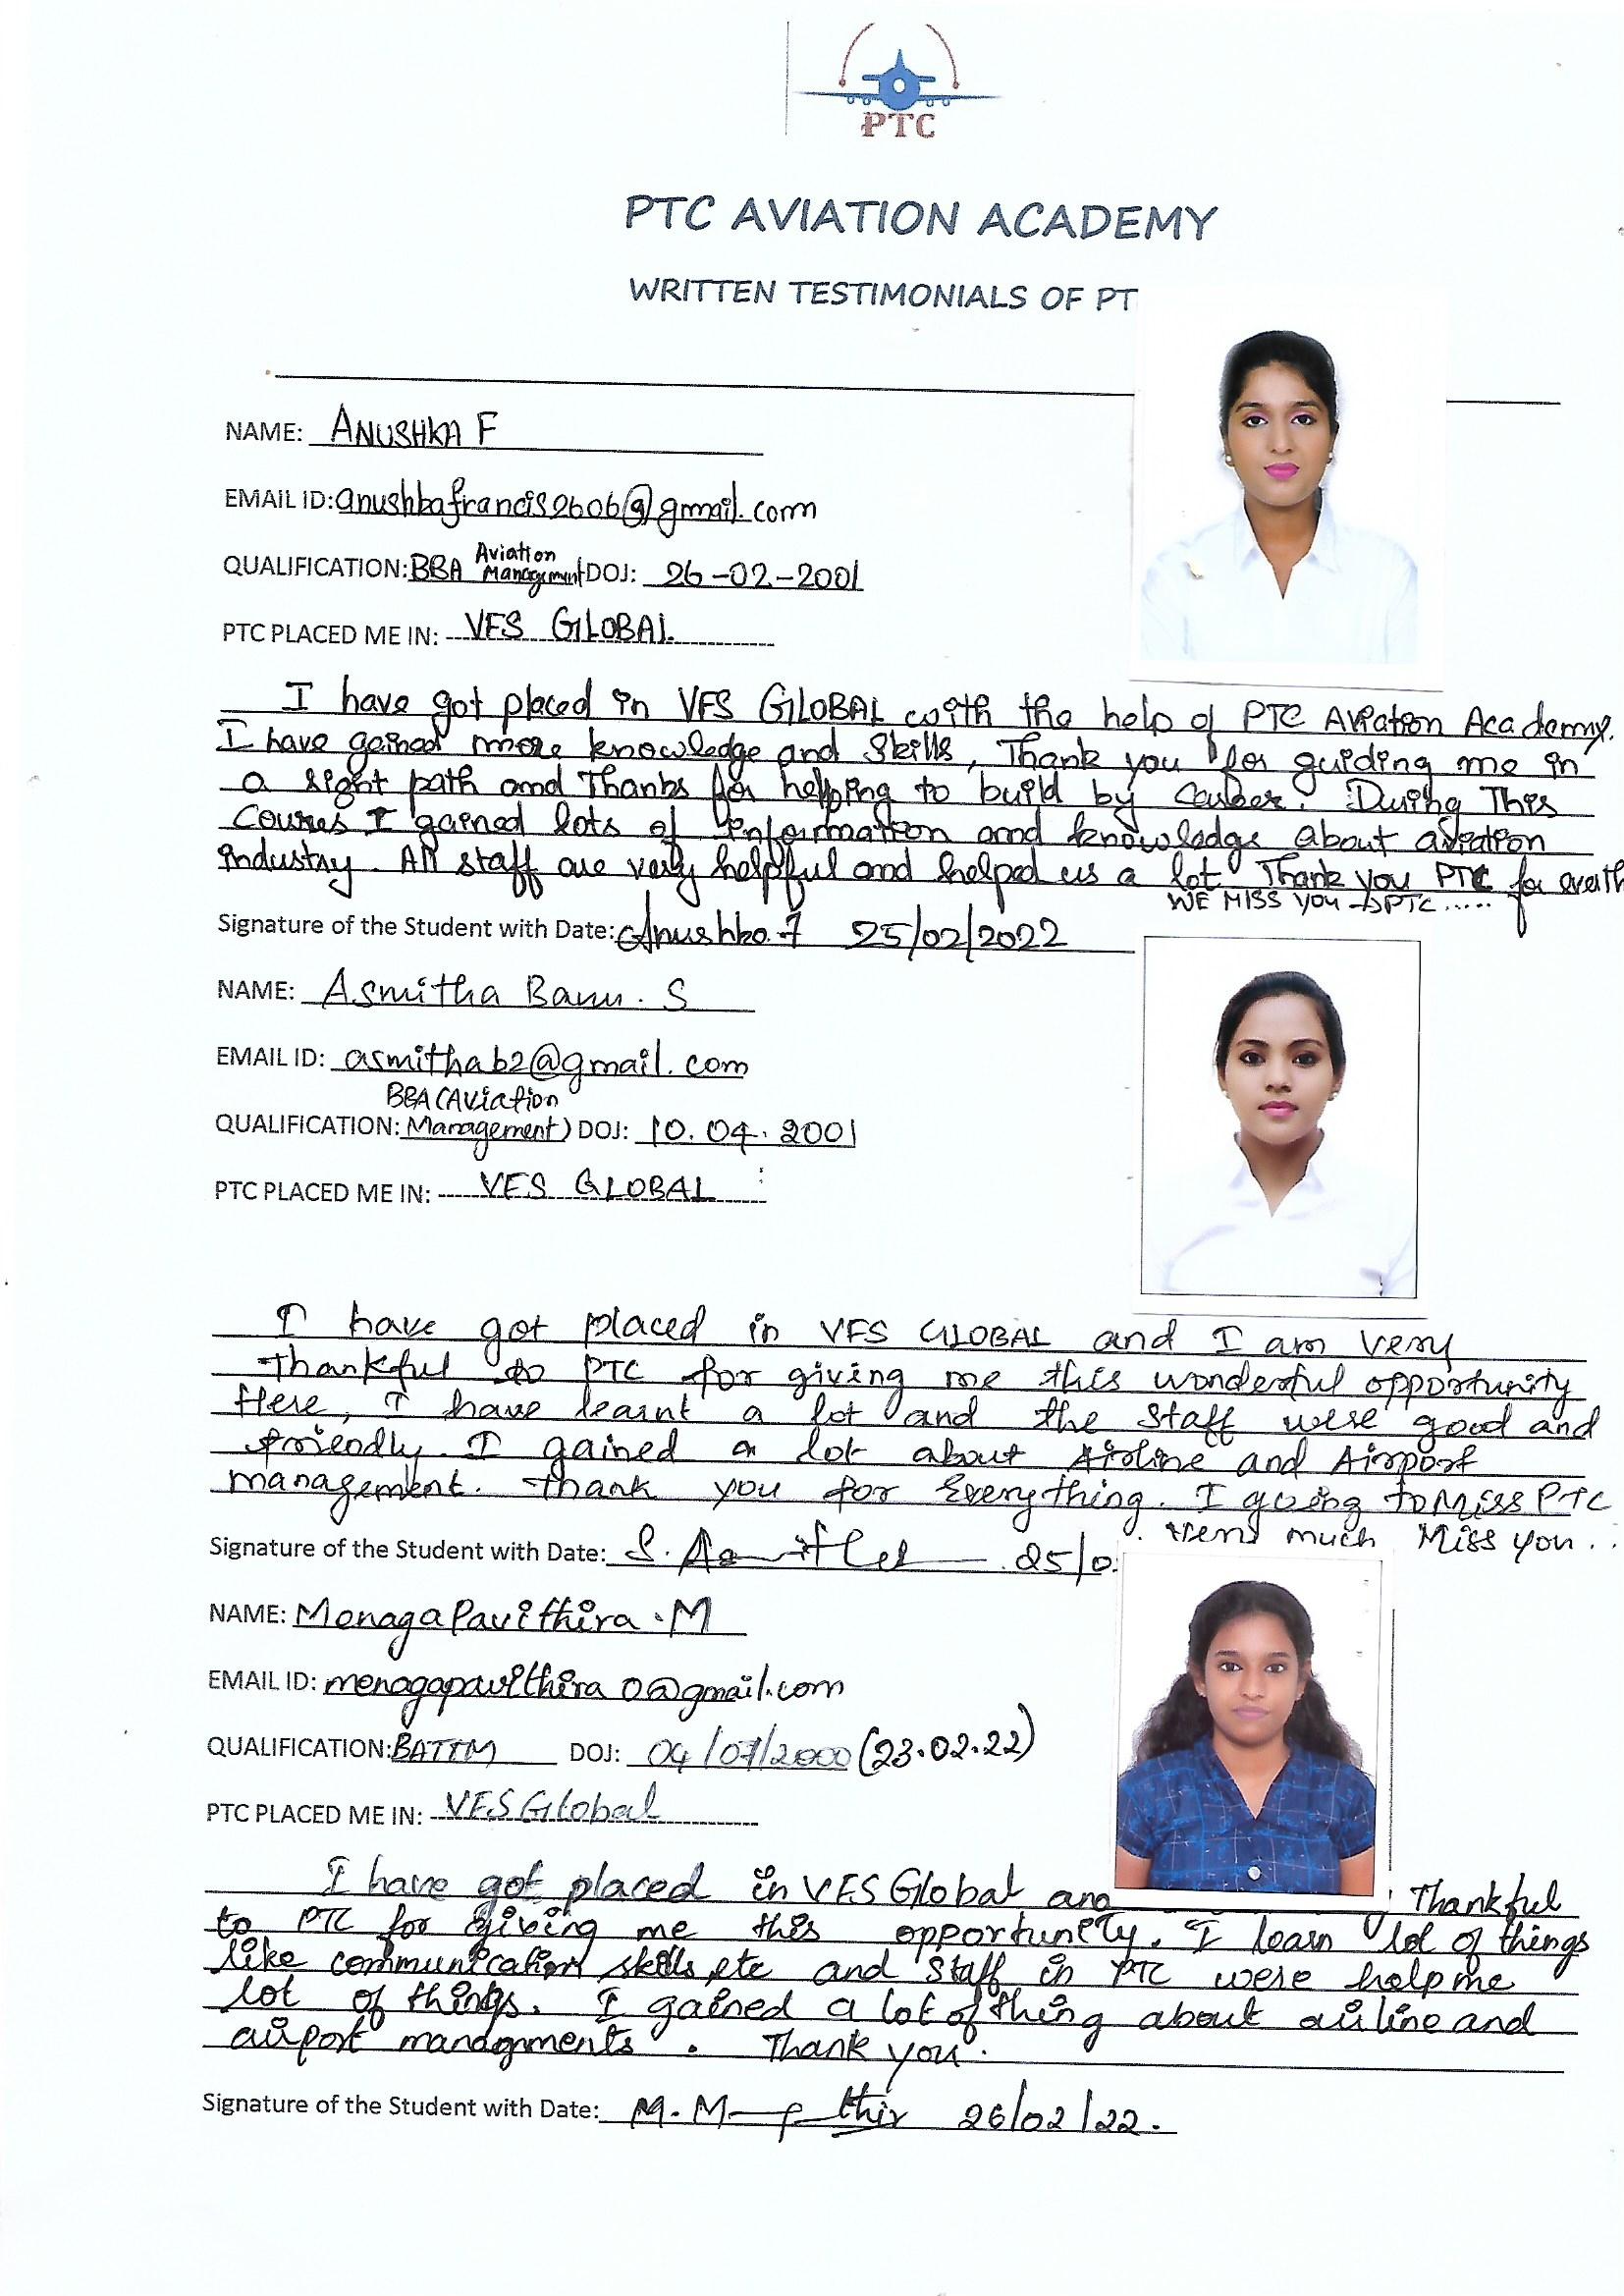 PTC
PTC AVIATION ACADEMY
WRITTEN TESTIMONIALS OF PT
NAME: ANUSHKA F
EMAIL ID: anushkafrancis2606@gmail.com
QUALIFICATION: BBA Aviation Management DOJ: 26-02-2001
PTC PLACED ME IN: VFS GLOBAL
I have got placed in VFS GLOBAL with the help of PTC Aviation Academy.
I have gained more knowledge and skills, Thank you for guiding me in
a right path and Thanks for helping to build by career. During This
Courses I gained lots of information and knowledge about aviation
industry. All staff are very helpful and helped us a lot Thank you PTC for
WE MISS YOU PTC.....
Signature of the Student with Date: Anushka.F 25/02/2022
NAME: Asmitha Banu. S
EMAIL ID: asmithab2@gmail.com
QUALIFICATION: BBA (Aviation Management) DOJ: 10.04.2001
PTC PLACED ME IN: VFS GLOBAL
I have got placed in VFS GLOBAL and I am very
thankful to PTC for giving me this wonderful opportunity
Here, I have learnt a lot and the staff were good and
friendly. I gained a lot about Airline and Airport
management. Thank you for Everything. I going to Miss PTC
much Miss you..
Signature of the Student with Date: 25/0
NAME: Menaga Pavithira.M
EMAIL ID: menagapavithira0@gmail.com
QUALIFICATION: BATTM DOJ: 04/07/2000 (23.02.22)
PTC PLACED ME IN: VFS Global
I have got placed in VFS Global and Thankful
to PTC for giving me this opportunity. I learn lot of things
like communication skills, etc and staff in PTC were help me
lot of things. I gained a lot of thing about airline and
airport managnments. Thank you.
Signature of the Student with Date: 26/02/22.